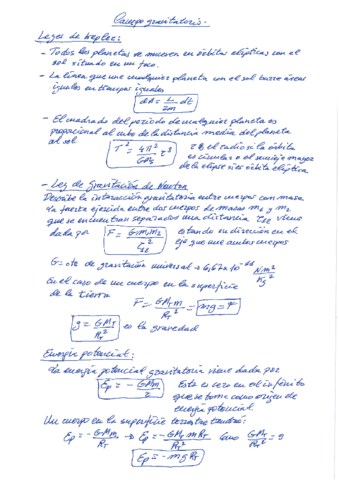 Campo gravitatorio.-
Leyes de kepler:
- Todos los planetas se mueven en órbitas elípticas con el
sol situado en un foco.
- La línea que une cualquier planeta con el sol barre áreas
iguales en tiempos iguales
dA = L/2m dt
- El cuadrado del periodo de cualquier planeta es
propocional al cubo de la distancia media del planeta
al sol.
T² = 4π²/GMs r³
r es el radio si la órbita
es circular o el semieje mayor
de la elipse si es órbita elíptica.
- Ley de Gravitación de Newton
Describe la interacción gravitatoria entre cuerpos con masa.
La fuerza ejercida entre dos cuerpos de masas m1 y m2
que se encuentran separados una distancia r12 viene
dada por F = G m1 m2/r12² estando su dirección en el
eje que une ambos cuerpos
G = cte de gravitación universal → 6,67x10⁻¹¹ N m²/kg²
En el caso de un cuerpo en la superficie
de la tierra
F = G MT m/RT² = mg = F
g = GMT/RT² es la gravedad
Energía potencial:
La energía potencial gravitatoria viene dada por
Ep = - GMm/r
Esta es cero en el infinito
que se toma como origen de
energía potencial
Un cuerpo en la superficie terrestre tendrá:
Ep = -GMm/RT → Ep = -GMT m RT/RT² como GMT/RT² = g
Ep = -mg RT